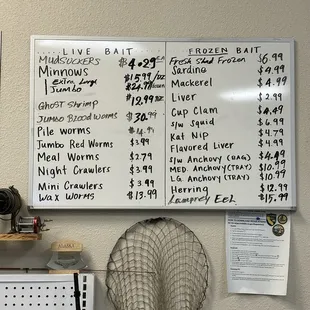 LIVE BAIT
Mudsuckers $4.29 EA
Minnows $15.99/DZ
Extra Large $24.99/DOZEN
Jumbo
Ghost Shrimp $12.99 DZ
Jumbo Blood Worms $30.99
Pile Worms $14.99
Jumbo Red Worms $3.99
Meal Worms $2.79
Night Crawlers $3.99
Mini Crawlers $3.99
Wax Worms $13.99
FROZEN BAIT
Fresh Shad Frozen $6.99
Sardine $4.99
Mackerel $4.99
Liver $2.99
Cup Clam $4.49
S/W Squid $6.99
Kat Nip $4.79
Flavored Liver $4.99
S/W Anchovy (BAG) $4.49
MED. Anchovy (TRAY) $10.99
LG. Anchovy (TRAY) $10.99
Herring $12.99
Lamprey Eel $15.99